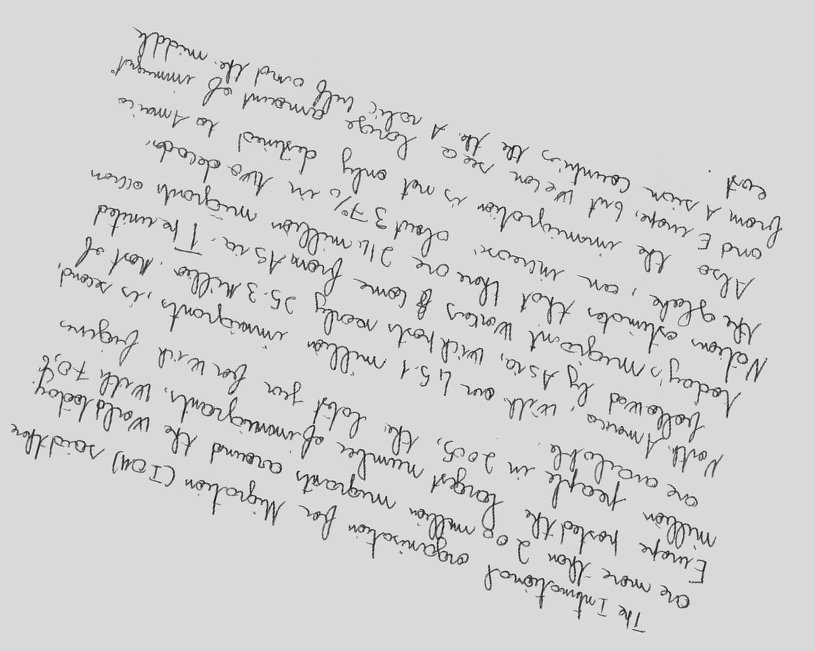 The International organisation for Migration (IOM) said there
are more than 200 million migrants around the world today
Europe hosted the largest number of immigrants, with 70,6
million people in 2005, the latest year for wich figures
are available.
North America, with over 45.1 million immigrants, is second,
followed by Asia, wich hosts nearly 25.3 Million. Most of
today's migrant workers come from Asia. The united
Nations estimates that there are 214 million migrants across
the globe, an increase about 37% in two decades.
Also the immigration is not only destined to America
and Europe, but we can see a large amount of immigrant
from Asian Countries the the and the middle
east.